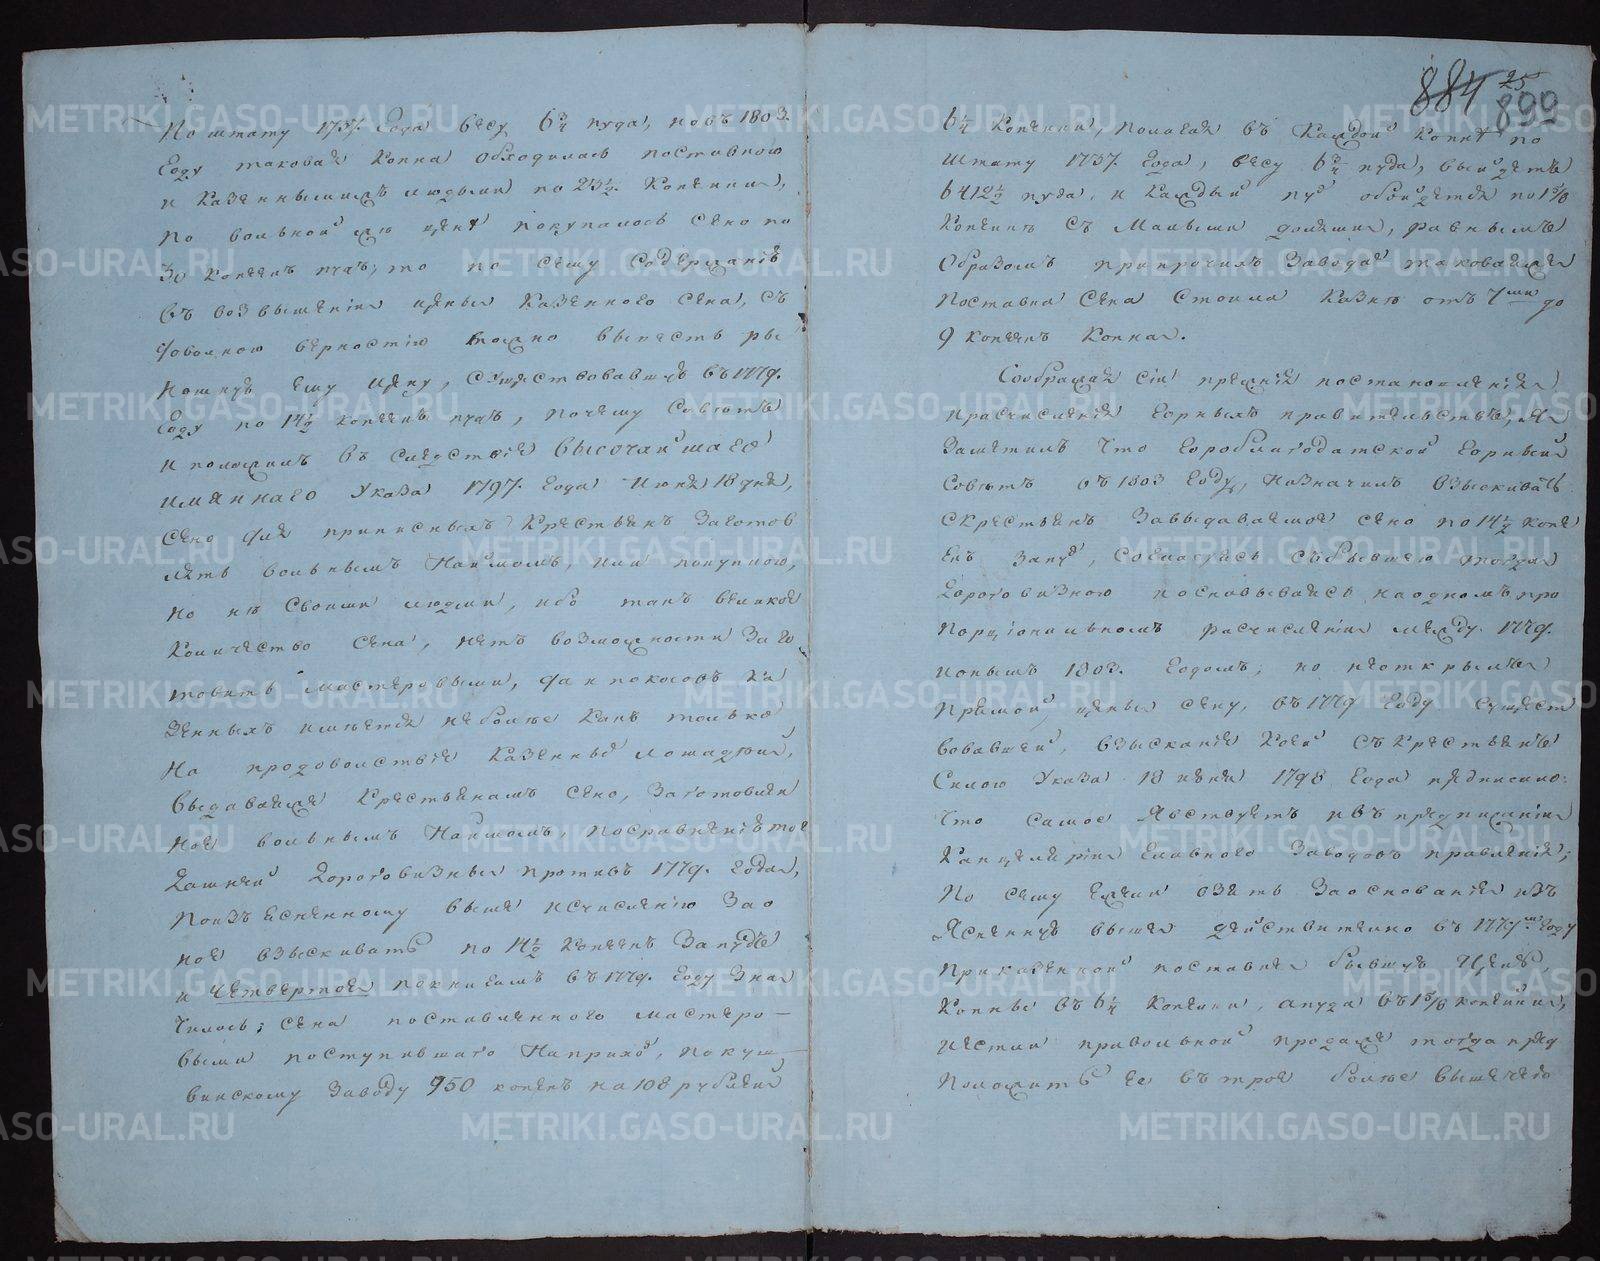 По штату 1737. Года весу 6 3/4 пуда, новъ 1803.
Году таковая Копна обходилась поставкою
и Казенными людьми по 23 1/2. Копейки,
по вольной цене покупалось Сено по
30 Копеекъ пудъ; то по сему Содержанію
въ возвышеніи цены Казенного Сена, съ
доволною верностію можно вывесть ры
ночную ему цену, существовавшую въ 1779.
Году по 14 1/2 копеекъ пудъ, почему Советъ
и положилъ въ следствіе Высочайшаго
имяннаго Указа 1797. Года Июня 18 дня,
Сено для приписныхъ Крестьянъ Заготов
лять вольнымъ Наймомъ, или покупкою,
но не Своими людми, ибо такъ великое
Количество Сена, нетъ возможности Заго
товить мастеровыми, да и покосовъ Ка
зенныхъ имеется неболее какъ только
На продоволствіе Казенныхъ лошадей,
Выдаваемое Крестьянамъ Сено, Заготовлен
ное вольнымъ Наймомъ, посравненію то
дашней дороговизны противъ 1779. Года,
Поизъясненному выше исчисленію За о
ное взыскивать по 14 1/2 Копеекъ Запудъ
и четвертое покнигамъ въ 1779. Году Зна
чилось; Сена поставленного мастеро-
выми поступившаго Наприходъ, покуш-
винскому Заводу 950 копенъ на 108 рублей
884 25
899
6 1/4 Копейки, полагая въ Каждой Копне по
Штату 1737. Года, весу 6 3/4 пуда, выйдетъ
6412 1/2 пуда, и Каждый пудъ обойдется по 1 5/8
Копейки Съ Малыми долями, равнымъ
Образомъ припрочихъ Заводахъ таковая же
Поставка Сена Стоила Казне отъ 7ми до
9 копеекъ Копна.
Соображая сіи прежнія постановленія
прасчисленія Горныхъ правительствъ, Я
Заметилъ Что Гороблагодатской Горный
Советъ въ 1803 Году, Назначилъ взыскивать
скрестьянъ Завыдаваемое сено по 14 1/2 копе
екъ Запудъ, согласуясь събывшею тогда
дороговизною поснавываясь наодномъ про
порціональномъ расчисленіи между 1779.
инынешъ 1803. Годомъ; но неоткрылъ
Прямой цены сену, въ 1779 Году сущест
вовавшей, взысканіе коей съ Крестьянъ
Силою Указа 18 июня 1798 Года предписано:
Что самое Явствуетъ изъ предписанія
Канцеляріи Главного Заводовъ правленія;
По сему Ежели взять Заоснованіе изъ
Ясненную выше действително въ 1779мъ Году
Приказенной поставке бывшую Цену,
Копны въ 6 1/4 Копейки, а пуда въ 1 5/8 копейки,
иестли привольной продаже тогда пред
положить ее въ трое более вышечего